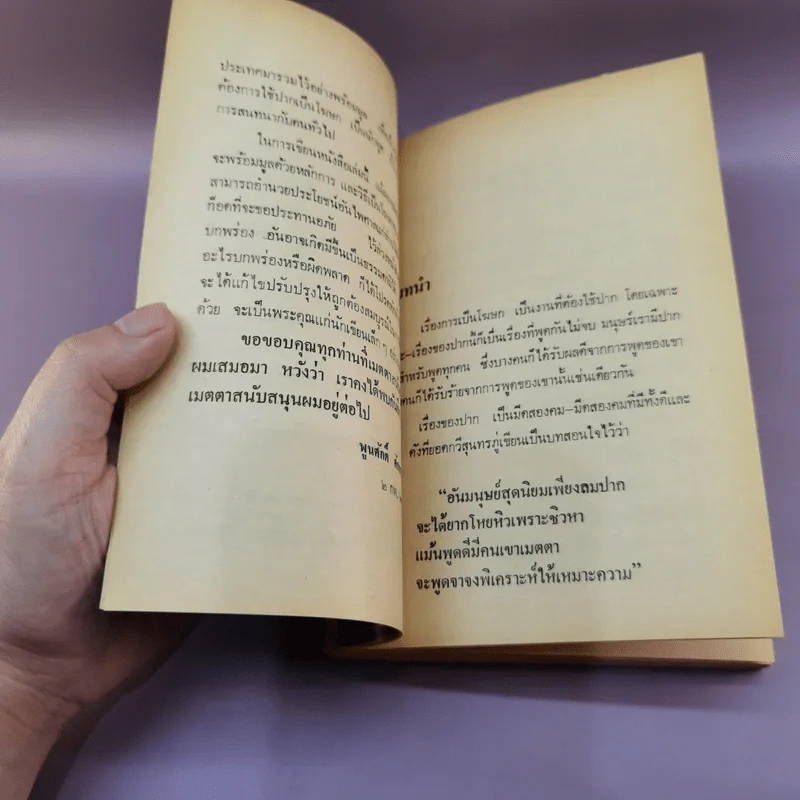 ประเทศมารวมไว้อย่างพร้อมมูล
ต้องการใช้ปากเป็นโฆษก เป็นนักพูด
การสนทนากับคนทั่วไป
ในการเขียนหนังสือเล่มนี้
จะพร้อมมูลด้วยหลักการ และวิธีเป็นโฆษก
สามารถอำนวยประโยชน์อันไพศาลแก่ท่าน
ก็อดที่จะขอประทานอภัย ไว้ล่วงหน้า
บกพร่อง อันอาจเกิดมีขึ้นเป็นธรรมดา
อะไรบกพร่องหรือผิดพลาด ก็ได้โปรด
จะได้แก้ไขปรับปรุงให้ถูกต้องสมบูรณ์
ด้วย จะเป็นพระคุณแก่นักเขียนเล็ก ๆ
ขอขอบคุณทุกท่านที่เมตตา
ผมเสมอมา หวังว่า เราคงได้พบกัน
เมตตาสนับสนุนผมอยู่ต่อไป
พูนศักดิ์
๒ กพ.
ทนำ
เรื่องการเป็นโฆษก เป็นงานที่ต้องใช้ปาก โดยเฉพาะ
–เรื่องของปากนี้ก็เป็นเรื่องที่พูดกันไม่จบ มนุษย์เรามีปาก
สำหรับพูดทุกคน ซึ่งบางคนก็ได้รับผลดีจากการพูดของเขา
คนก็ได้รับร้ายจากการพูดของเขานั้นเช่นเดียวกัน
เรื่องของปาก เป็นมีดสองคม–มีดสองคมที่มีทั้งดีและ
ดังที่ยอดกวีสุนทรภู่เขียนเป็นบทสอนใจไว้ว่า
“อันมนุษย์สุดนิยมเพียงลมปาก
จะได้ยากโหยหิวเพราะชิวหา
แม้นพูดดีมีคนเขาเมตตา
จะพูดจาจงพิเคราะห์ให้เหมาะความ”